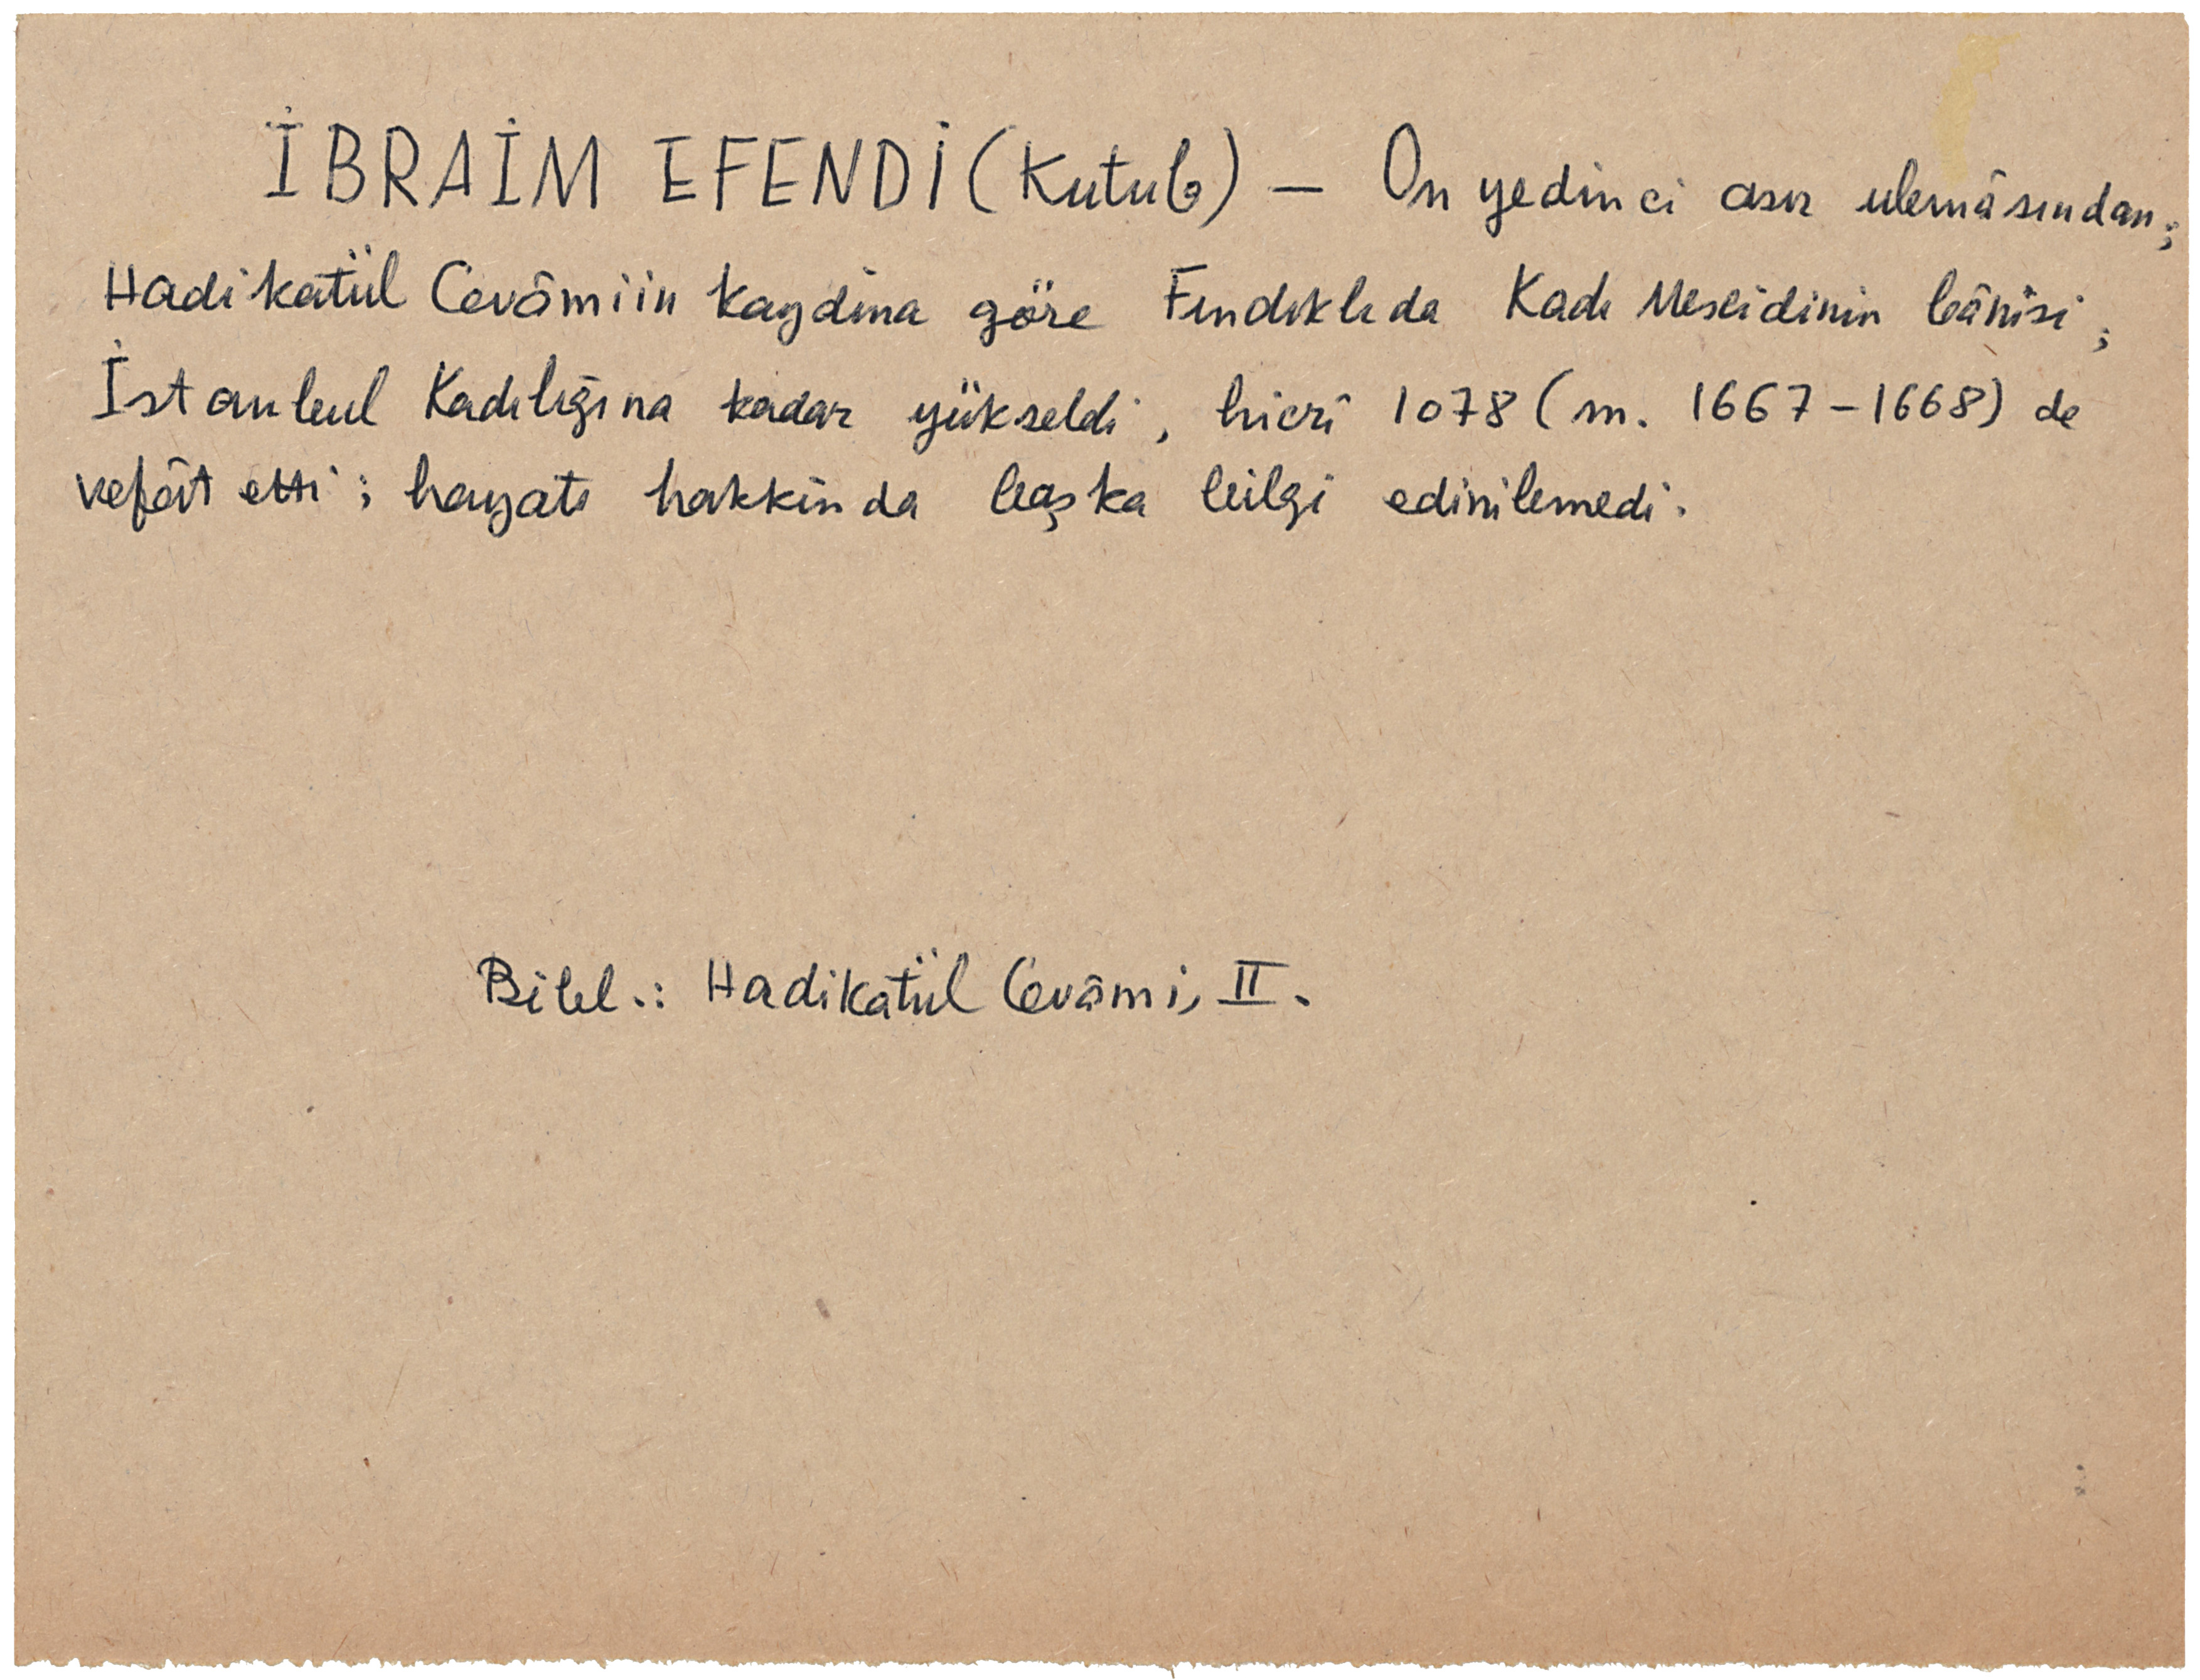 İBRAİM EFENDİ (Kutub) — On yedinci asır ulemâsından;
Hadikatül Cevâmiin kaydına göre Fındıklıda Kadı Mescidinin bânisi;
İstanbul Kadılığına kadar yükseldi, hicrî 1078 (m. 1667-1668) de
vefât etti; hayatı hakkında başka bilgi edinilemedi.
Bibl.: Hadikatül Cevâmi, II.